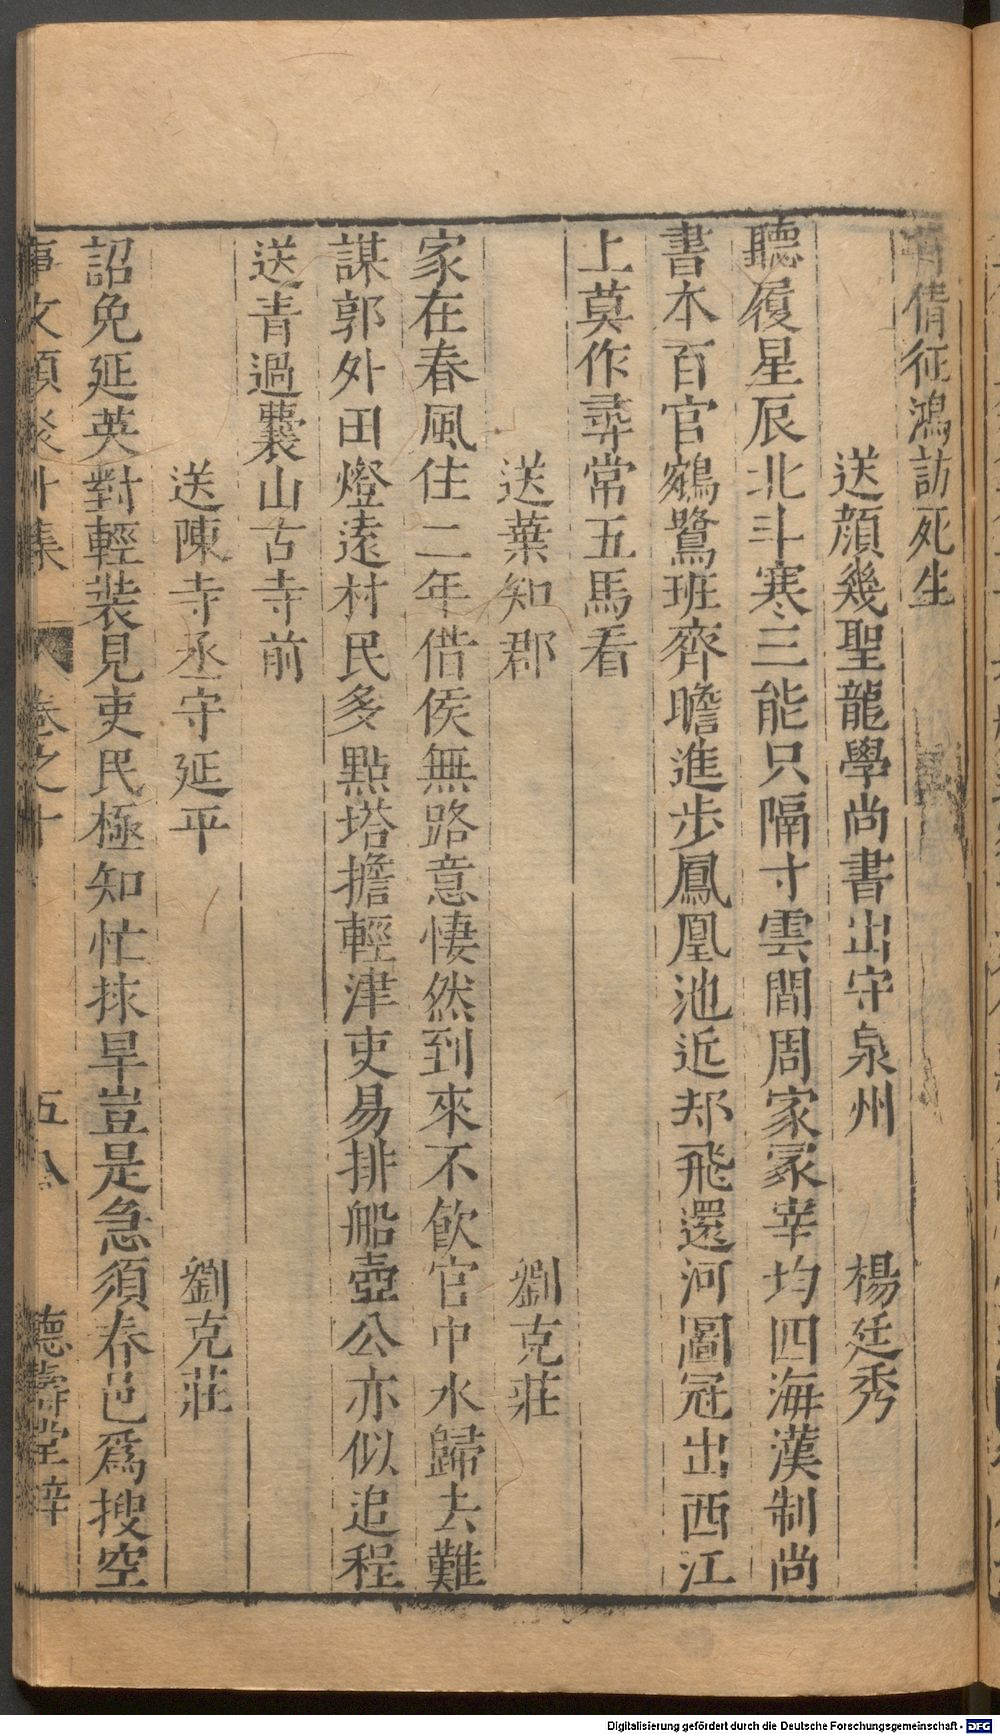 倩征鴻訪死生
送顔幾聖龍學尚書出守泉州　楊廷秀
聽履星辰北斗寒三能只隔寸雲間周家冢宰均四海漢制尚
書本百官鵷鷺班齊瞻進步鳳凰池近却飛還河圖冠出西江
上莫作尋常五馬看
送葉知郡　劉克莊
家在春風住二年借侯無路意悽然到來不飲官中水歸去難
謀郭外田燈遠村民多點塔擔輕津吏易排船壺公亦似追程
送青過囊山古寺前
送陳寺丞守延平　劉克莊
詔免延英對輕裝見吏民極知忙捄旱豈是急須春邑爲搜空
事文類聚外集　卷之十　五八　德壽堂梓
Digitalisierung gefördert durch die Deutsche Forschungsgemeinschaft - DFG